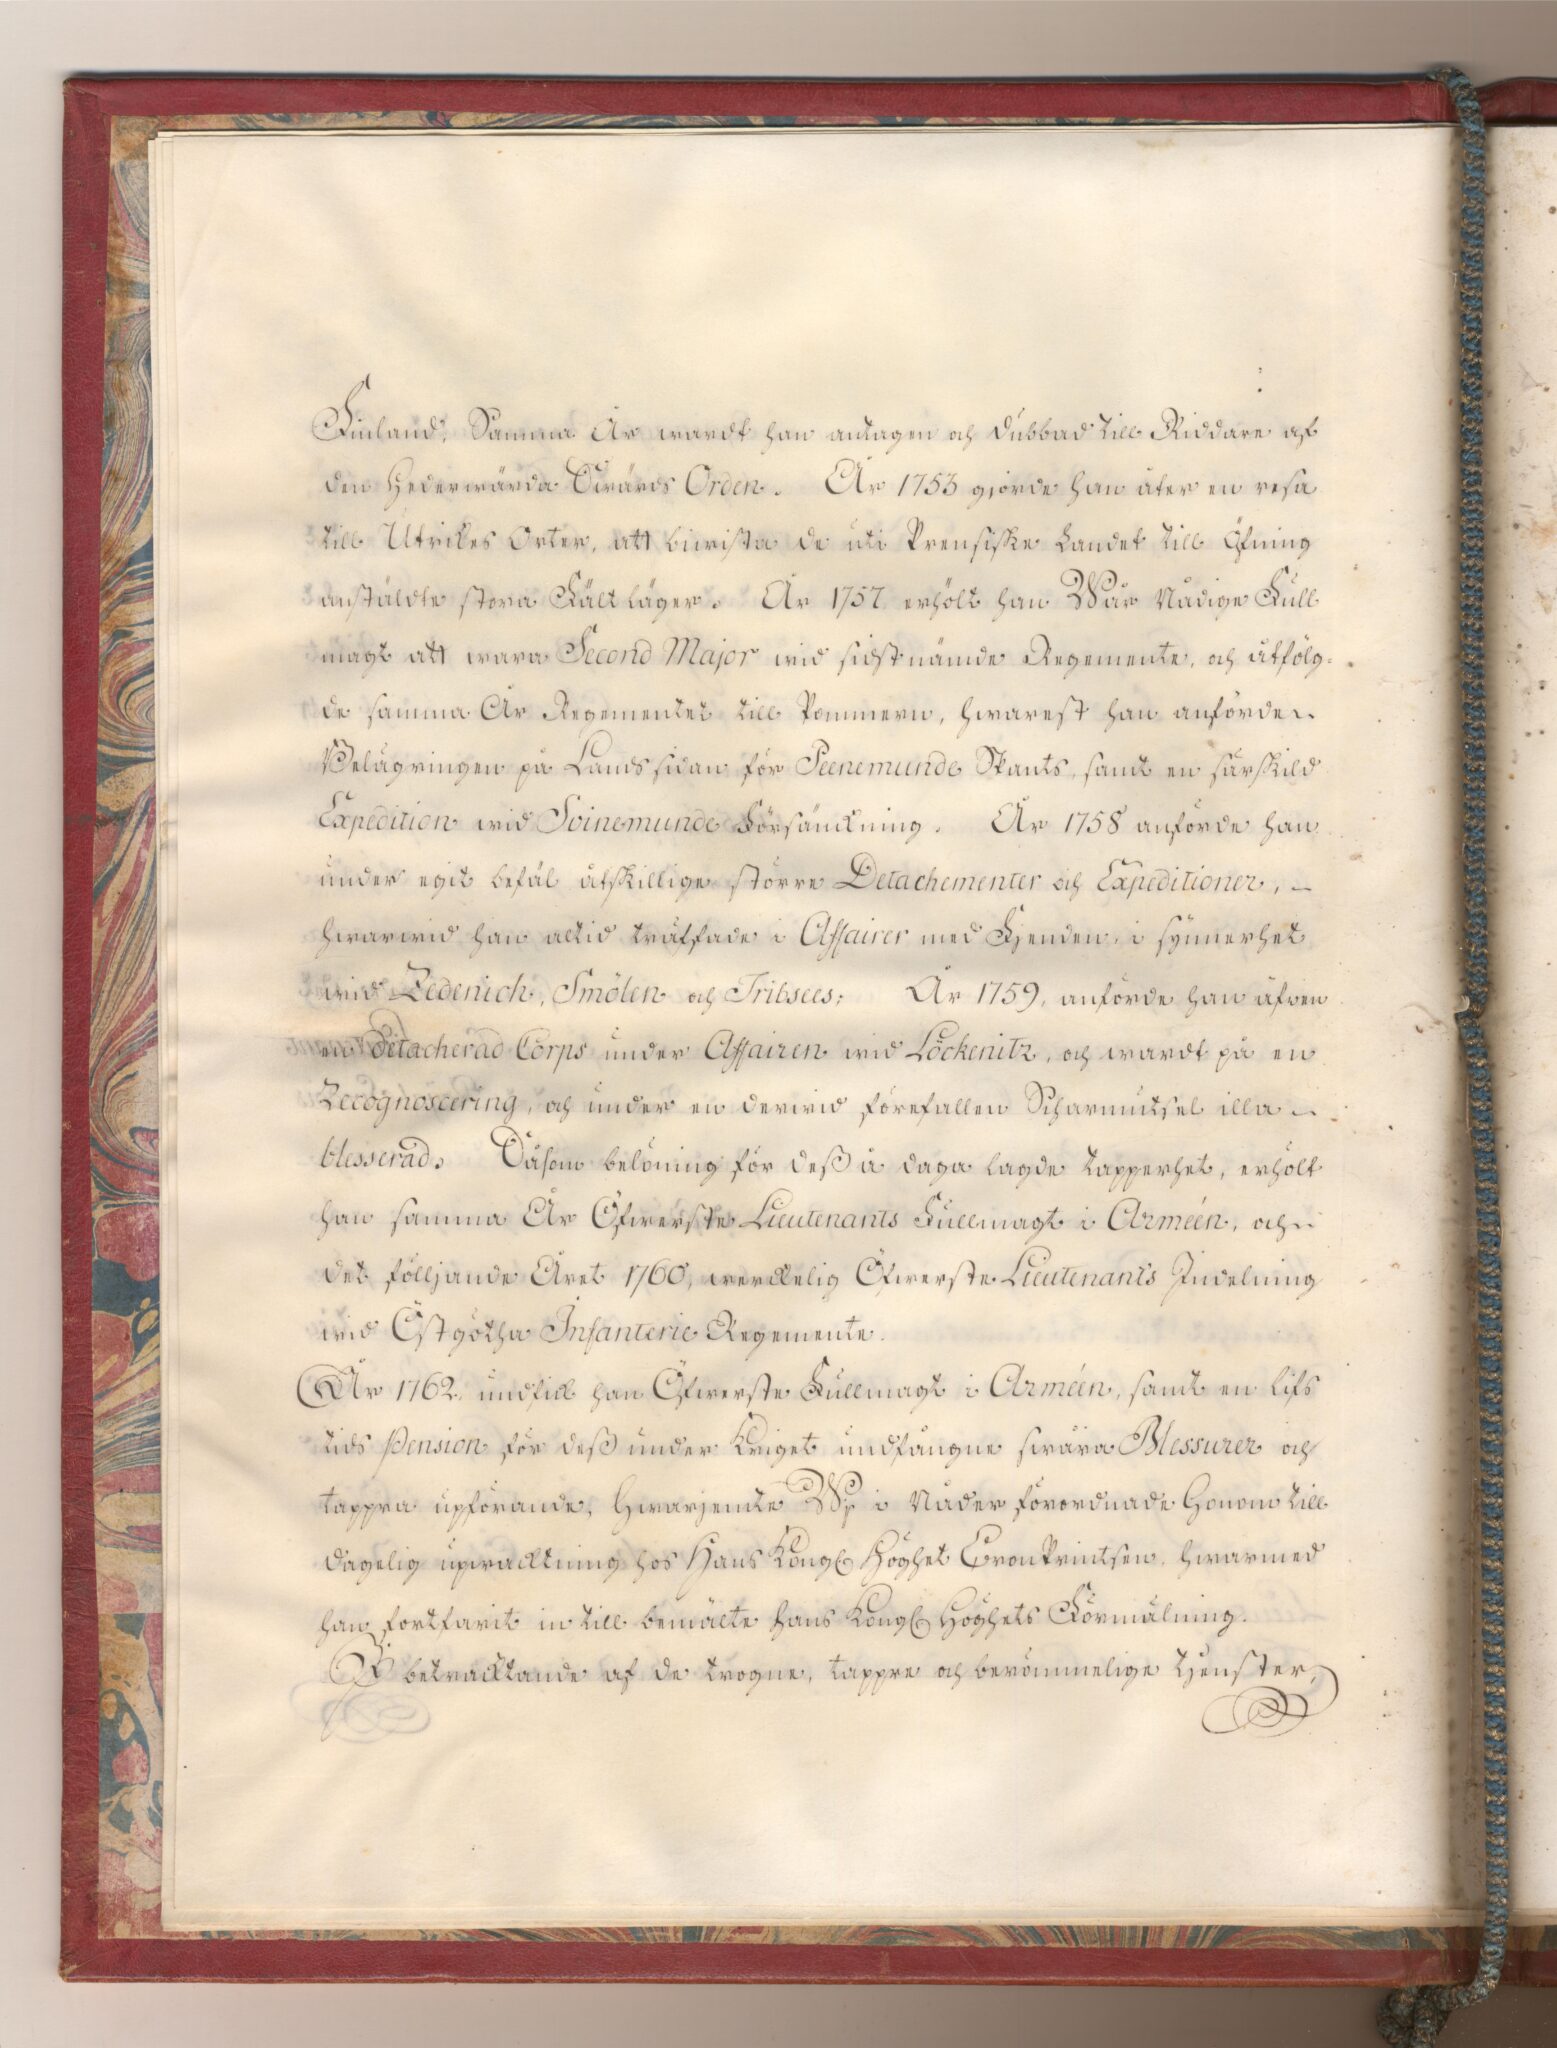 Finland. Samma År wardt han antagen och dubbad till Riddare af
den Hederwärda Swärds Orden. År 1753 giorde han åter en resa
till Utrikes Orter, att biwista de uti Preusiske Landet till Öfning
anstäldte stora Fältläger. År 1757 erhölt han Wår Nådige Full
magt att wara Second Major wid sidstnämde Regemente, och åtfölg-
de samma År Regementet till Pommern, hwarest han anförde
Belägringen på Lands sidan för Peenemunde Skants, samt en särskild
Expedition wid Svinemunde Försänckning. År 1758 anförde han
under egit befäl åtskillige större Detachementer och Expeditioner,
hwarwid han altid träffade i Affairer med Fjenden, i synnerhet
wid Zedenich, Smölen och Tribsees; År 1759, anförde han äfwen
en Detacherad Corps under Affairen wid Löckenitz, och wardt på en
Recognoscering, och under en derwid förefallen Scharmutsel illa
blesserad. Såsom belöning för deß å daga lagde tapperhet, erhölt
han samma År Öfwerste Lieutenants Fullmagt i Arméen, och
det följjande Året 1760, werckelig Öfwerste Lieutenants Indelning
wid Östgötha Infanterie Regemente.
År 1762. undfick han Öfwerste Fullmagt i Arméen, samt en lifs
tids Pension för deß under Kriget undfångne swåra Blessurer och
tappra upförande, Hwarjemte Wj i Nåder förordnade Honom till
dagelig upwacktning hos Hans Kongl. Höghet CronPrintsen, hwarmed
han fortfarit in till bemälte Hans Kongl. Höghets Förmälning.
I betracktande af de trogne, tappre och berömmelige tjenster,